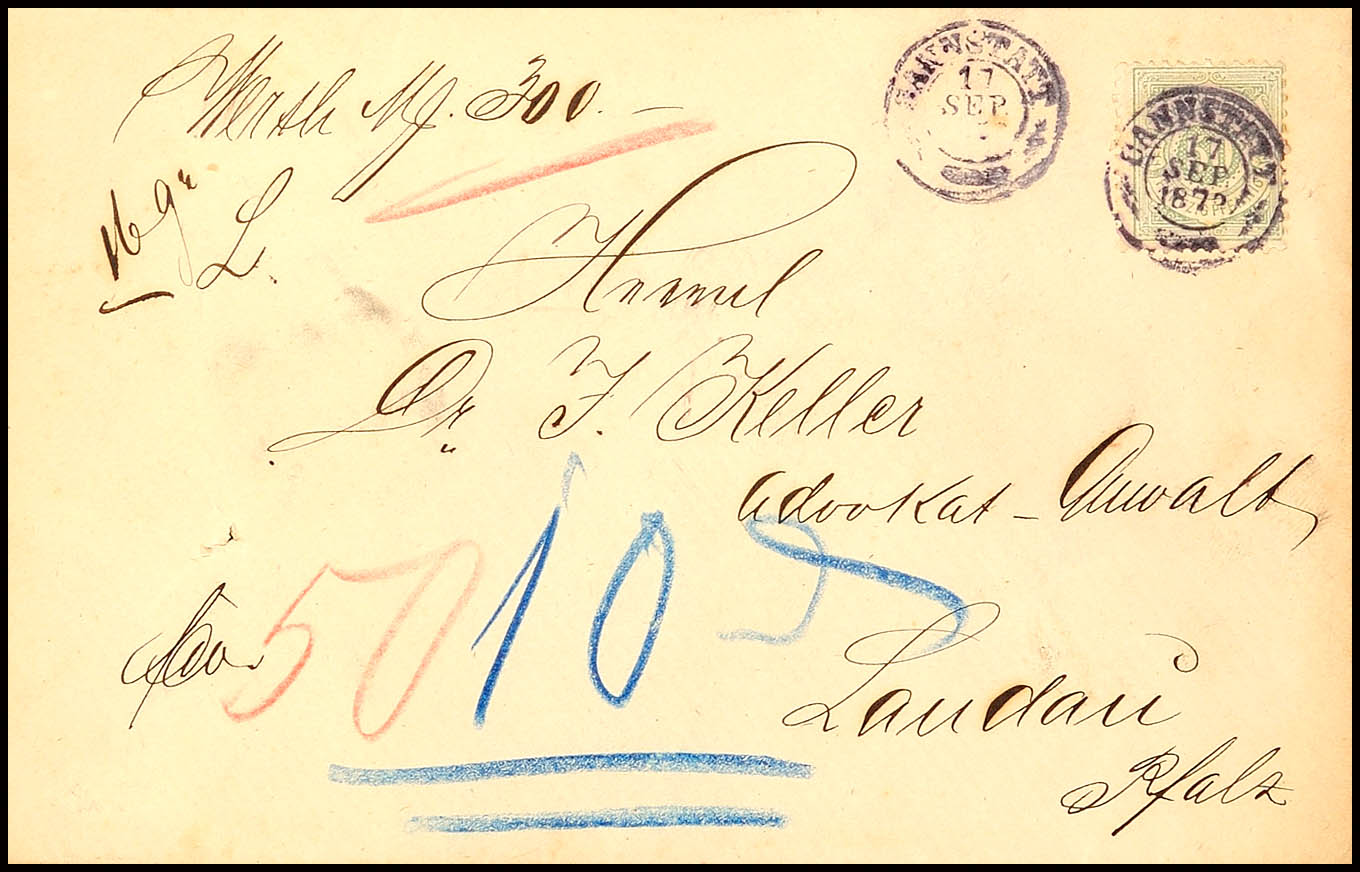 Werth M. 300.—
16 gr
L.
CANNSTATT
17
SEP
CANNSTATT
17
SEP
187
Herrn
Dr. F. Keller
Advokat-Anwalt
fco.
50
10
Landau
Pfalz